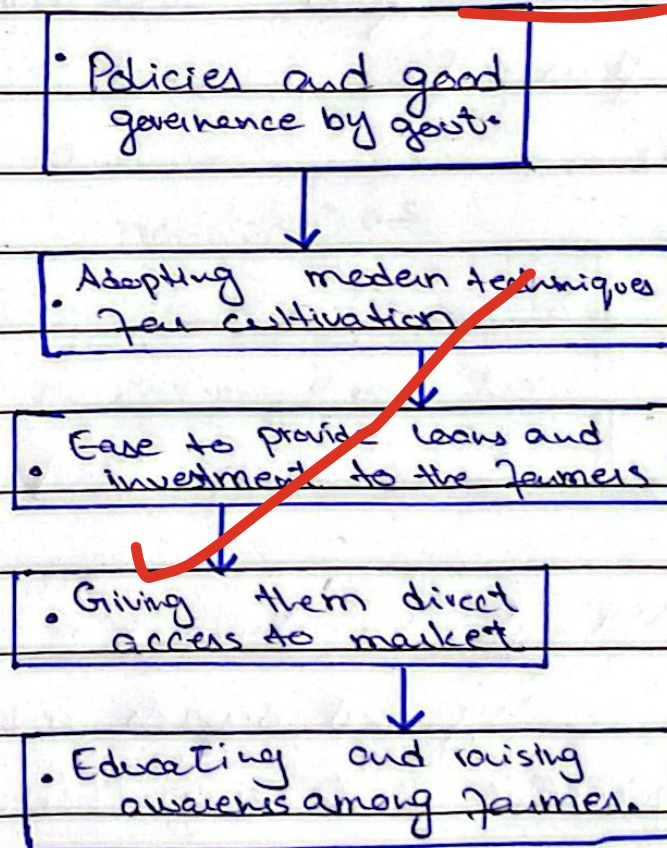 • Policies and good
governance by govt.
Adopting modern techniques
• for cultivation
Ease to provide loans and
• investment to the farmers
• Giving them direct
access to market
• Educating and raising
awarenes among farmes.